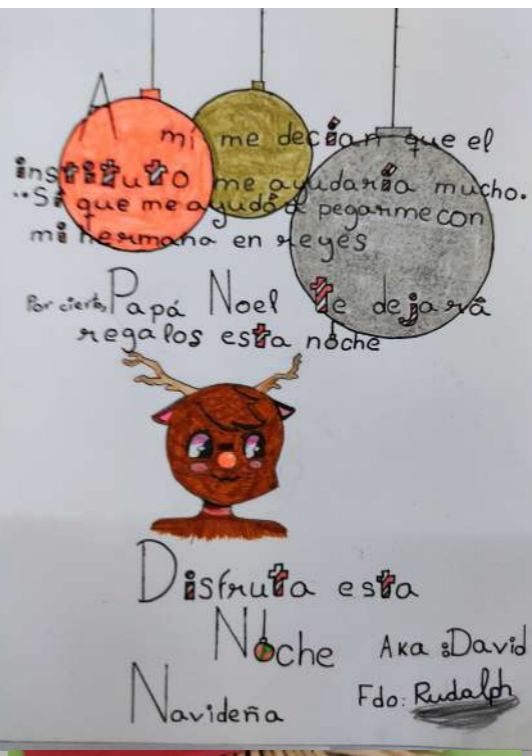 A mí me decían que el
instituto me ayudaría mucho.
..Sí que me ayudó a pegarme con
mi hermana en reyes
Por cierto, Papá Noel te dejará
regalos esta noche
Disfruta esta
Noche
Aka : David
Navideña
Fdo: Rudalph